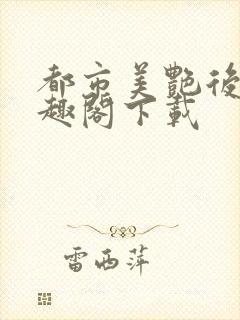 都市美艷後
趣閣下載
雷西萍